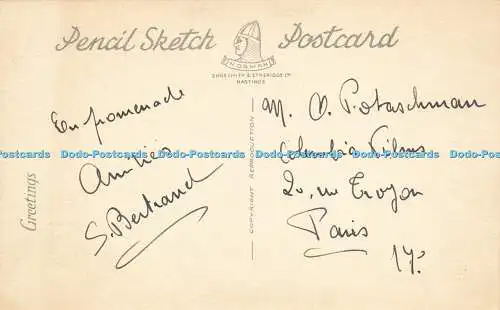 Pencil Sketch Postcard
NORMAN
SHOESMITH & ETHERIDGE LTD
HASTINGS
Greetings
En promenade
Amitiés
S. Bertrand
COPYRIGHT REPRODUCTION
M. O. Potaschman
Columbia Films
20, rue Troyon
Paris
17e
Dodo-Postcards Dodo-Postcards Dodo-Postcards Dodo-Postcards Dodo-Postcards